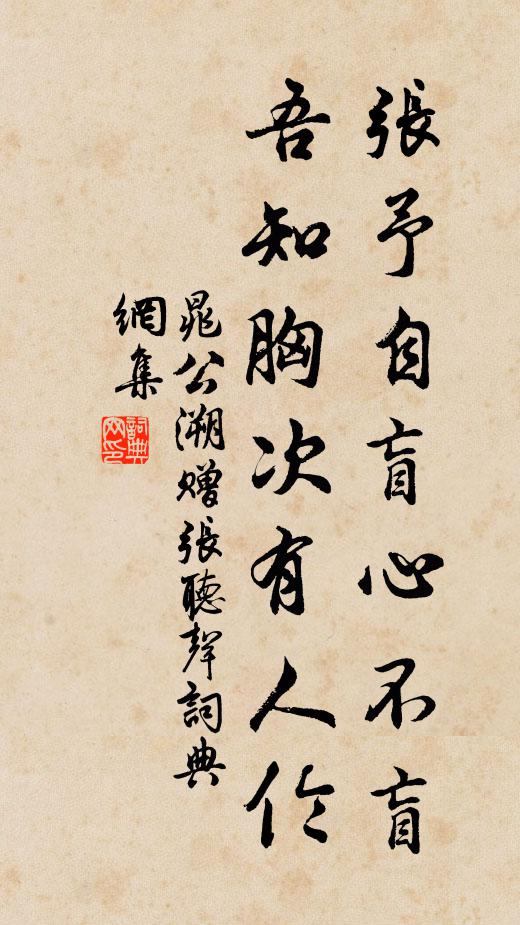 張予自盲心不盲
吾知胸次有人倫
晁公溯贈張聽聲詞典
網集
詞典
网印